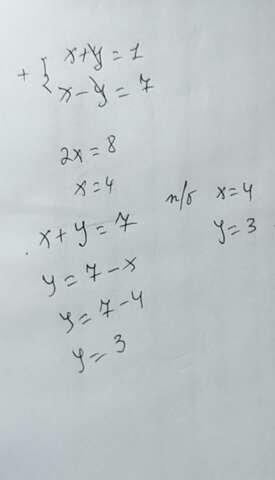 + { x+y=1
x-y=7
2x=8
x=4
x+y=7
y=7-x
y=7-4
y=3
x=4
y=3